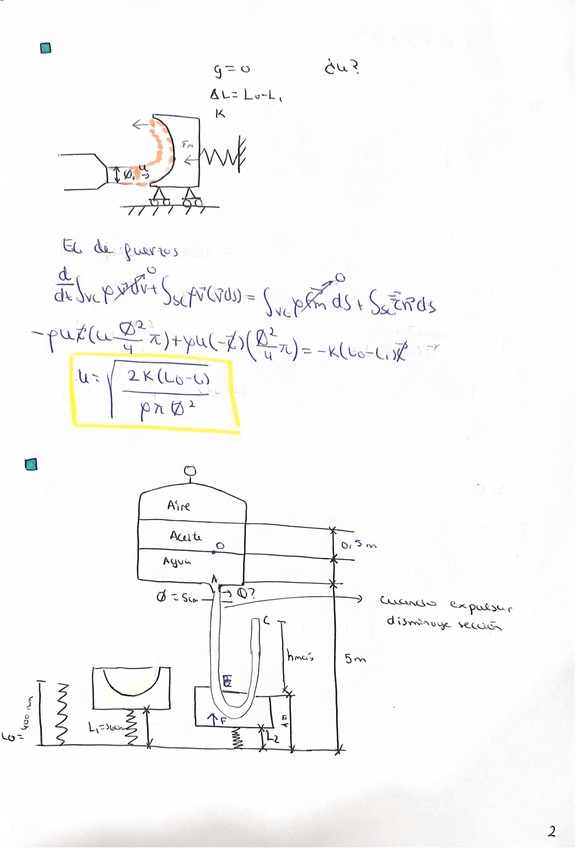 g=0 ¿u?
ΔL= L0-L1
K
Fm
Ø, u
Ec de fuerzas
d/dt ∫vc ρv̄dv + ∫sc ρv̄(v̄ds) = ∫vc ρf̄m ds + ∫sc τ̄n̄ds
0 0
-ρuī(u Ø²/4 π)+ρu(-ī)(Ø²/4 π)= -K(L0-L1)ī
u= √(2K(L0-L1)/ρπØ²)
Aire
Aceite
O
0,5m
Agua
A
Ø=5cm
Q?
cuando expulsar
disminuye sección
C
hmáx
5m
B
L0=400mm
L1=360mm
F
L2
1m
2